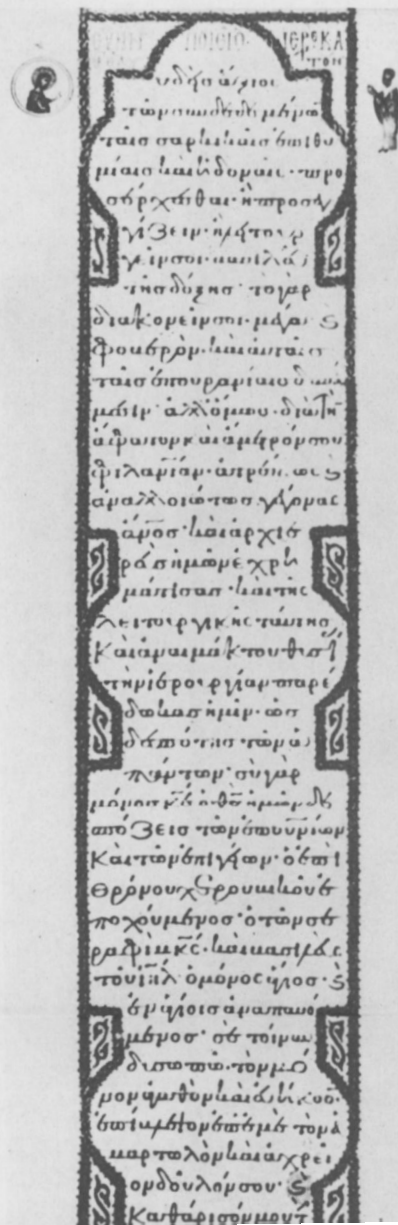 υδεὶς ἄξιος
τῶν συνδεδεμένω
ταῖς σαρκικαῖς ἐπιθυ
μίαις καὶ ἡδοναῖς · προ
σέρχεσθαι · ἢ προσεγ
γίζειν · ἢ λειτουρ
γεῖν σοι · βασιλεῦ
τῆς δόξης · τὸ γὰρ
διακονεῖν σοι · μέγα ϗ
φοβερὸν · καὶ αὐταῖς
ταῖς ἐπουρανίαις δυνά
μεσιν · ἀλλ ὅμως · διὰ τὴν
ἄφατον καὶ ἀμέτρητόν σου
φιλανίαν · ἀτρέπτως ϗ
ἀναλλοιώτως γέγονας
ἄνος · καὶ ἀρχιε
ρεὺς ἡμῶν ἐχρη
μάτισας · καὶ τῆς
λειτουργικῆς ταύτης
καὶ ἀναιμάκτου θυσί
τὴν ἱερουργίαν παρέ
δωκας ἡμῖν · ὡς
δεσπότης τῶν ἁ
πάντων · σὺ γὰρ
μόνος κε ὁ θς ἡμῶν δε
σπόζεις τῶν ἐπουνίων
καὶ τῶν ἐπιγείων · ὁ ἐπὶ
θρόνου χερουβικοῦ ἐ
ποχούμενος · ὁ τῶν σε
ραφὶμ κς · καὶ βασιλεὺς
τοῦ ιηλ ὁ μόνος ἅγιος · ϗ
ἐν ἁγίοις ἀναπαυό
μενος · σὲ τοίνυν
δυσωπῶ · τὸν μό
νον ἀγαθὸν καὶ εὐήκοον ·
ἐπίβλεψον ἐπ ἐμὲ τὸν ἁ
μαρτωλὸν καὶ ἀχρεῖ
ον δοῦλόν σου · ϗ
καθάρισόν μου τ